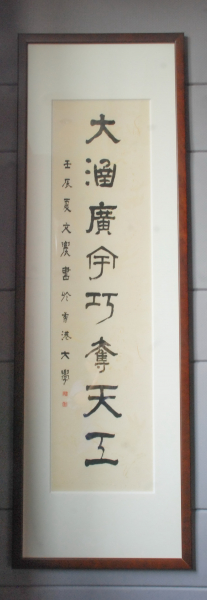 大涵廣宇巧奪天工
壬辰夏文農書於香港大學